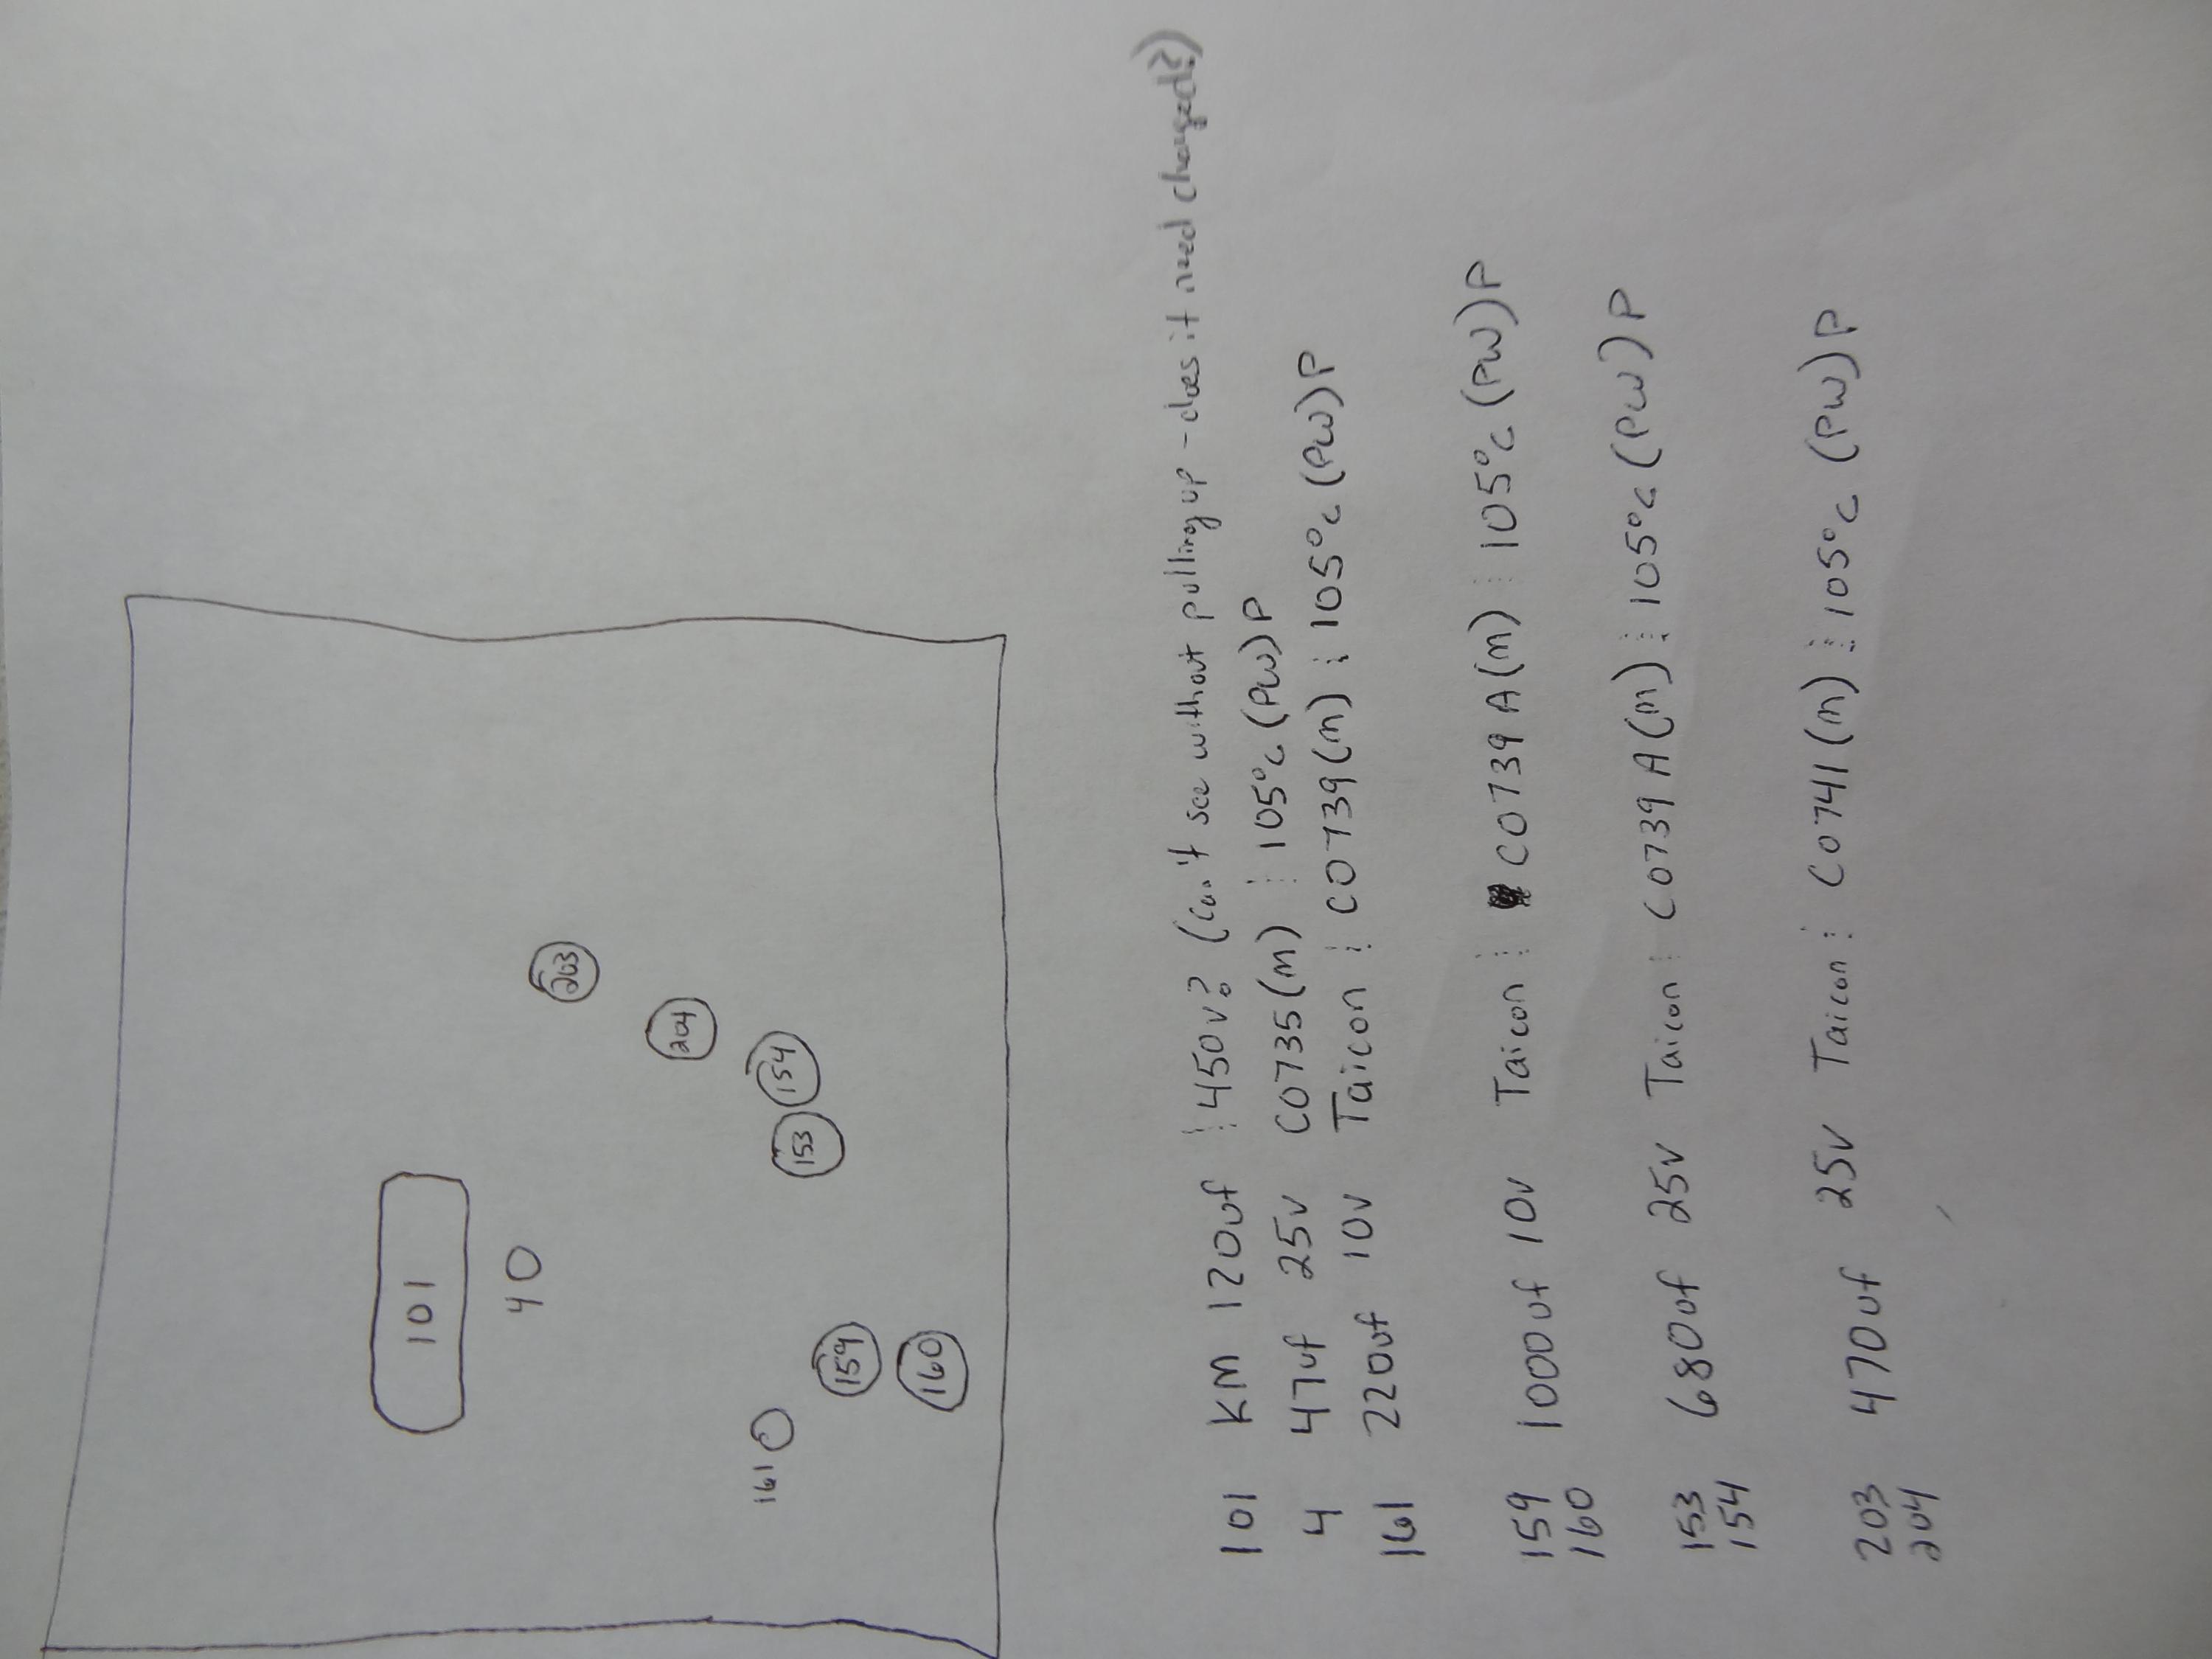 101
4
203
204
154
153
161
159
160
101 KM 120uf ⋮ 450v? (Can't see without pulling up - does it need changed?)
4 47uf 25v C0735(M) ⋮ 105°c (PW)P
161 220uf 10v Taicon ⋮ C0739(M) ⋮ 105°c (PW)P
159 1000uf 10v Taicon ⋮ C0739A(M) ⋮ 105°c (PW)P
160
153 680uf 25v Taicon ⋮ C0739A(M) ⋮ 105°c (PW)P
154
203 470uf 25v Taicon ⋮ C0741(M) ⋮ 105°c (PW)P
204